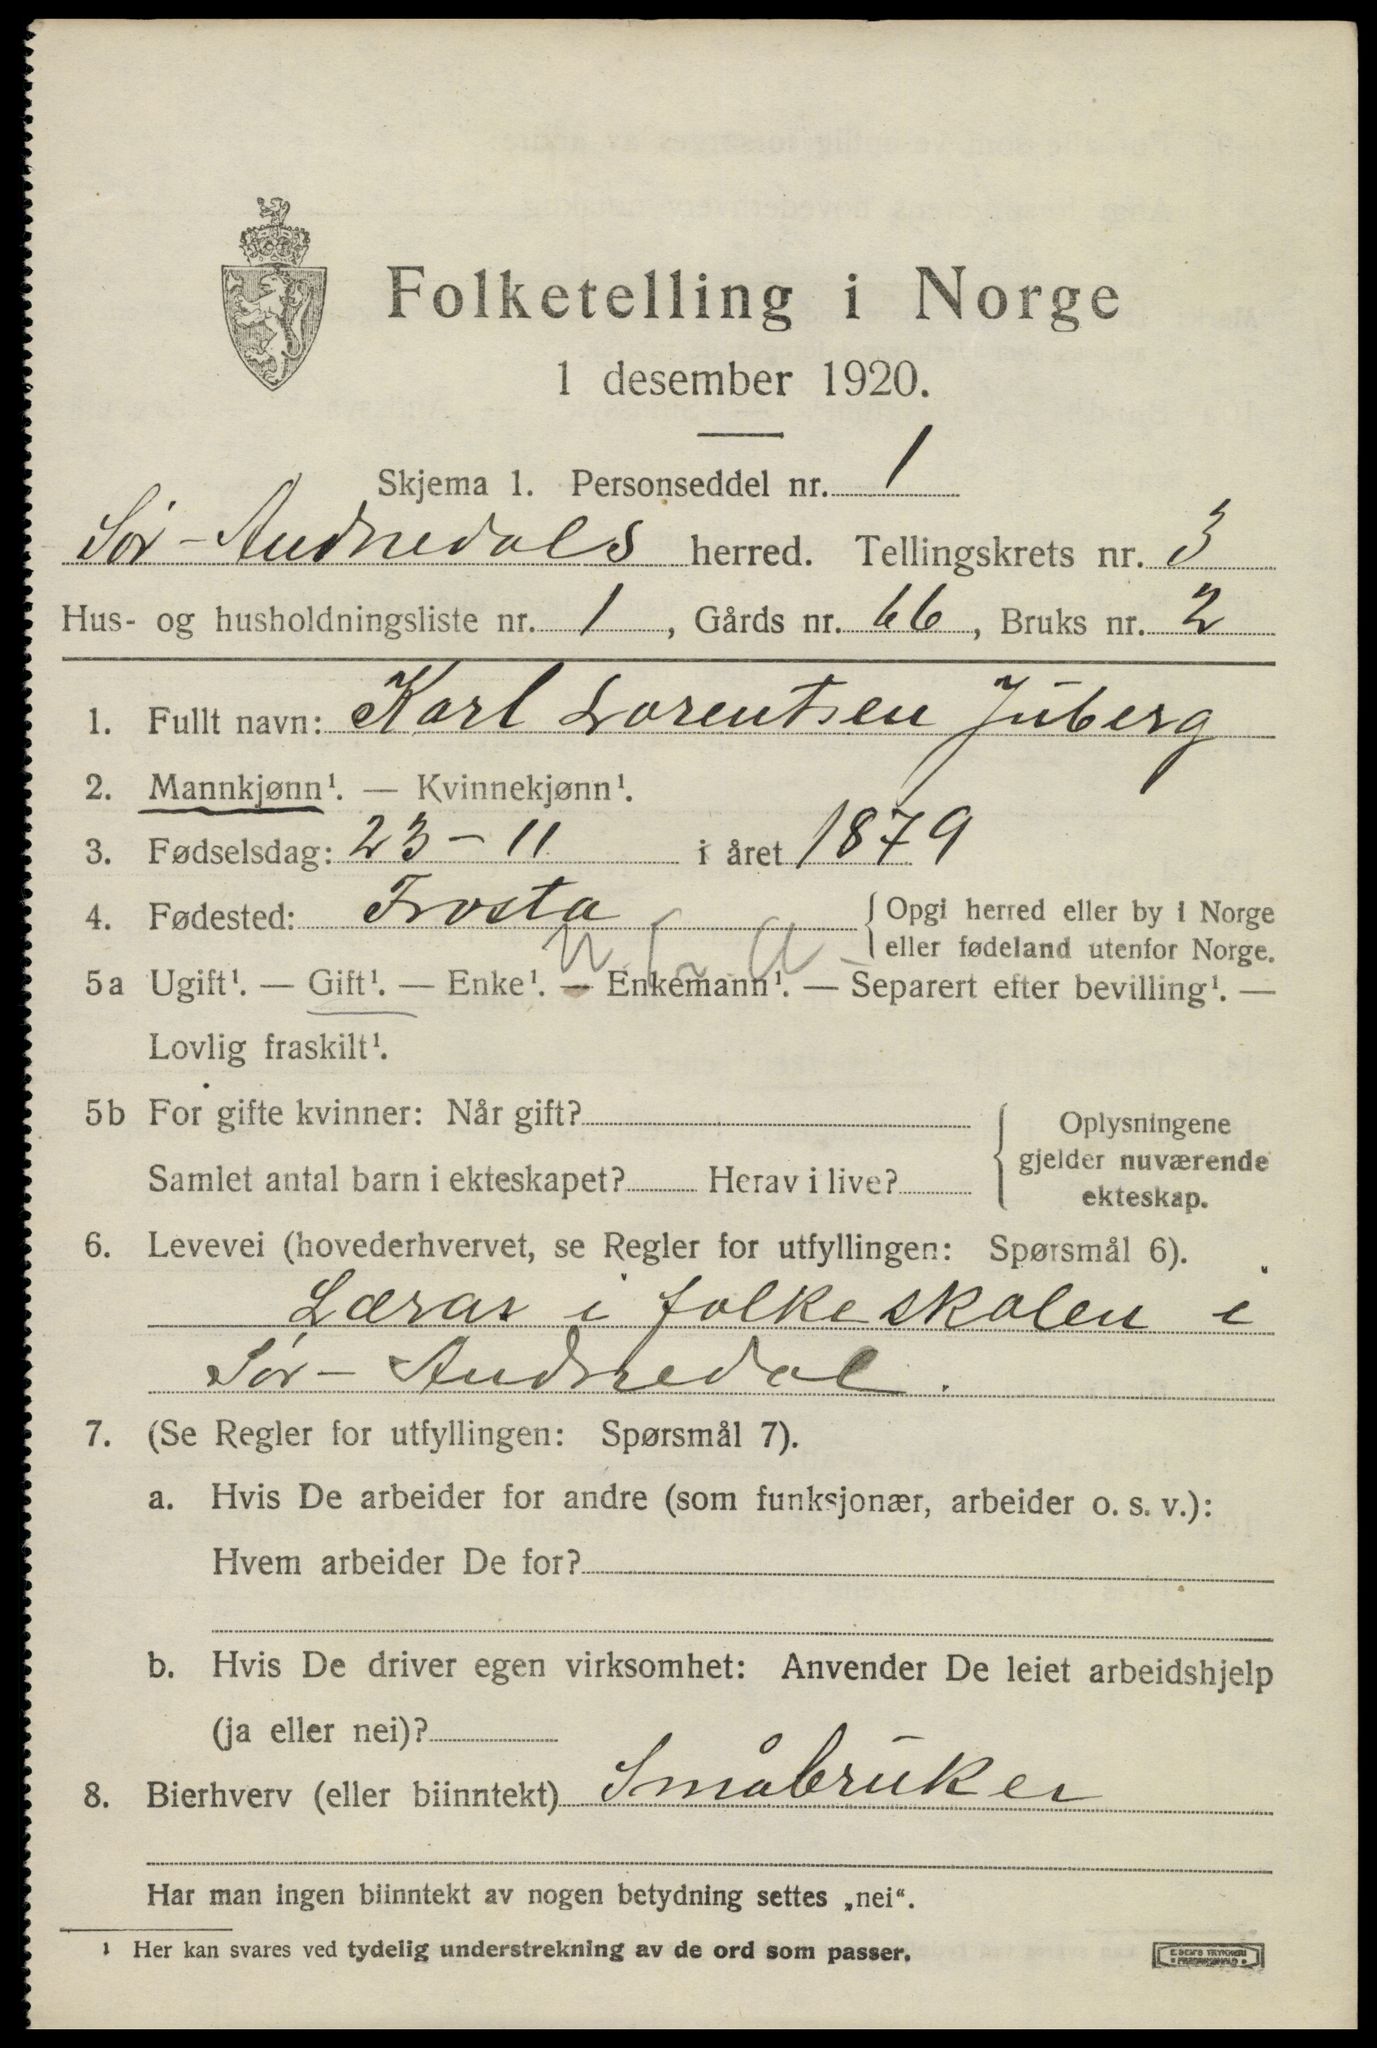 Folketelling i Norge
1 desember 1920.
Skjema 1. Personseddel nr. 1
Sør-Audnedals herred. Tellingskrets nr. 3
Hus- og husholdningsliste nr. 1, Gårds nr. 66, Bruks nr. 2
1. Fullt navn: Karl Lorentsen Juberg
2. Mannkjønn¹. — Kvinnekjønn¹.
3. Fødselsdag: 23-11 i året 1879
4. Fødested: Frosta {Opgi herred eller by i Norge
eller fødeland utenfor Norge.
5a Ugift¹. — Gift¹. — Enke¹. — Enkemann¹. — Separert efter bevilling¹. —
Lovlig fraskilt¹.
5b For gifte kvinner: Når gift?
Samlet antal barn i ekteskapet? Herav i live?
Oplysningene
gjelder nuværende
ekteskap.
6. Levevei (hovederhvervet, se Regler for utfyllingen: Spørsmål 6).
Lærar i folkeskolen i
Sør-Audnedal.
7. (Se Regler for utfyllingen: Spørsmål 7).
a. Hvis De arbeider for andre (som funksjonær, arbeider o. s. v.):
Hvem arbeider De for?
b. Hvis De driver egen virksomhet: Anvender De leiet arbeidshjelp
(ja eller nei)?
8. Bierhverv (eller biinntekt) Småbruker
Har man ingen biinntekt av nogen betydning settes „nei“.
¹ Her kan svares ved tydelig understrekning av de ord som passer.